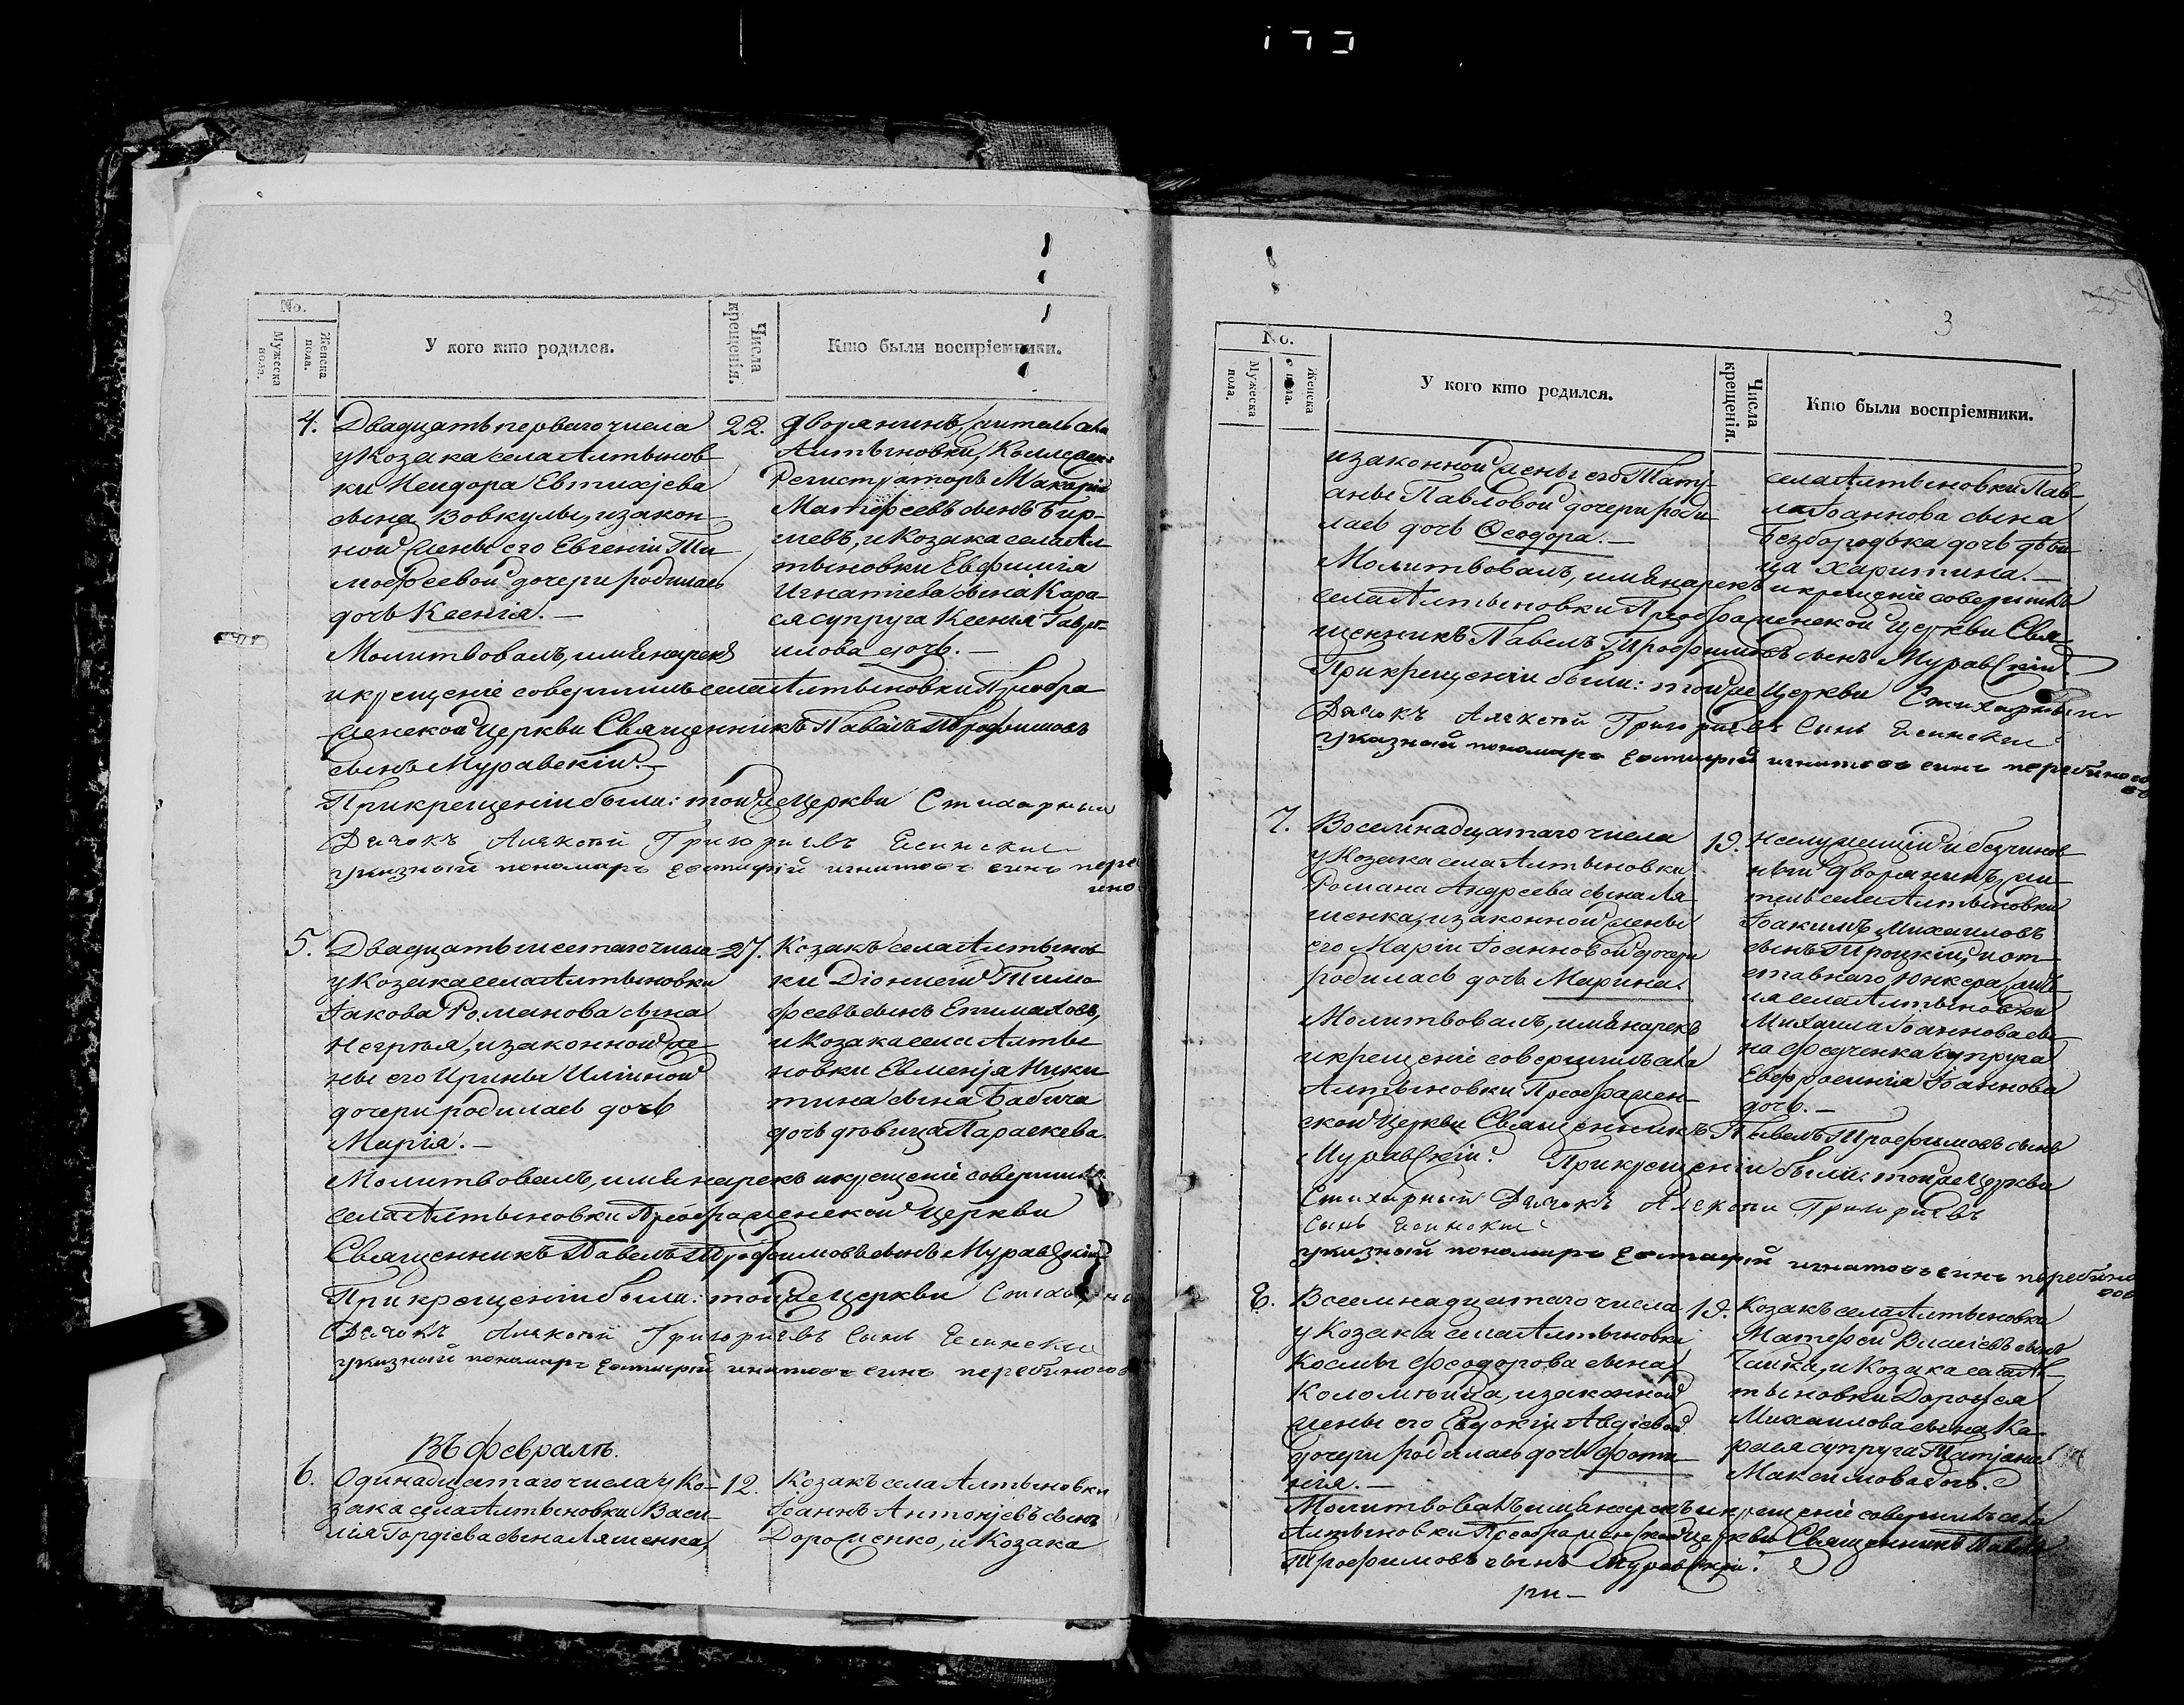 No.
Мужеска пола.
Женска пола.
У кого кто родился.
Числа крещенія.
Кто были воспріемники.
4.
Двадцать перваго числа
у Козака села Алтынов
ки Исидора Евтихіева
сына Вовкулы, и закон
ной жены его Евгеніи Ти
мофеевой дочери родилась
дочь Ксенія. —
Молитвовалъ, имя нарекъ
22.
Дворянинъ, житель села
Алтыновки, Коллежск:
Регистраторъ Макарій
Матфеевъ сынъ Бир-
шевъ, и Козака села Ал
тыновки Евфимія
Игнатіева сына Кара
ся супруга Ксенія Гавр-
илова дочь. —
и крещеніе совершилъ села Алтыновки Преобра
женской Церкви Священникъ Павелъ Трофимовъ
сынъ Муравскій. —
При крещеніи были: той же Церкви Стихарный
Дячокъ Алексѣй Григориевъ Есинский
указный пономарь Евстафий игнатовъ синъ пере
ино
5.
Двадцать шестаго числа
у Козака села Алтыновки
Іакова Романова сына
Негрѣя, и законной же
ны его Ирины Иліиной
дочери родилась дочь
Марія. —
27.
Козакъ села Алтынов
ки Діонисій Тимо
феевъ сынъ Епимаховъ,
и Козака села Алты
новки Евменія Ники
тина сына Бабича
дочь дѣвица Параскева.
Молитвовалъ, имя нарекъ и крещеніе совершилъ
села Алтыновки Преображенской Церкви
Священникъ Павелъ Трофимовъ сынъ Муравскій
При крещеніи были: той же Церкви Стихарны
Дячокъ Алексѣй Григориевъ Сынъ Есинский
указный пономарь Евстафий игнатовъ синъ перебиносов
Въ февралѣ.
6.
Одинадцатаго числа у Ко-
зака села Алтыновки Васи-
лія Гордіева сына Ляшенка,
12.
Козакъ села Алтыновки
Іоаннъ Антоніевъ сынъ
Дорошенко, и Козака
3
No.
Мужеска пола.
Женска пола.
У кого кто родился.
Числа крещенія.
Кто были воспріемники.
и законной жены его Таті-
аны Павловой дочери роди
лась дочь Ѳеодора. —
села Алтыновки Пав-
ла Іоаннова сына
Безбородька дочь дѣви
ца Харитина. —
Молитвовалъ, имя нарекъ и крещеніе совершилъ
села Алтыновки Преображенской Церкви Свя-
щенникъ Павелъ Трофимовъ сынъ Муравскій.
При крещеніи были: той же Церкви Стихарный
Дячокъ Алексѣй Григориевъ Сынъ Есинский
Указный пономарь Евстафий игнатовъ синъ перебиносо
въ
7.
Восемнадцатаго числа
у Козака села Алтыновки
Романа Андреева сына Ля
шенка, и законной жены
его Маріи Іоанновой дочери
родилась дочь Марина.
Молитвовалъ, имя нарекъ
и крещеніе совершилъ села
Алтыновки Преображен-
19.
Неслужащій и безчинов
ный дворянинъ, жи-
тель села Алтыновки
Іоакимъ Михаиловъ
сынъ Троцкій, и от-
ставнаго Юнкера, жите
ля села Алтыновки
Михаила Іоаннова сы-
на Федченка супруга
Евфросинія Іоаннова
дочь. —
ской Церкви Священникъ Павелъ Трофимовъ сынъ
Муравскій. При крещеніи были: той же Церкви
Стихарный Дячокъ Алексѣй Григориевъ
Сынъ Есинский
указный пономарь Евстафий игнатовъ синъ перебино
сов
8.
Восемнадцатаго числа
у Козака села Алтыновки
Космы Феодорова сына
Коломійца, и законной
жены его Евдокіи Авдіевой
дочери родилась дочь Фоти
нія. —
19.
Козакъ села Алтыновки
Матфей Власіевъ сынъ
Чайка, и Козака села Ал-
тыновки Дорофея
Михаилова сына Ка-
рася супруга Татіана
Максимова дочь.
Молитвовалъ, имя нарекъ и крещеніе совершилъ села
Алтыновки Преображенской Церкви Священникъ Павелъ
Трофимовъ сынъ Муравскій.
ри-